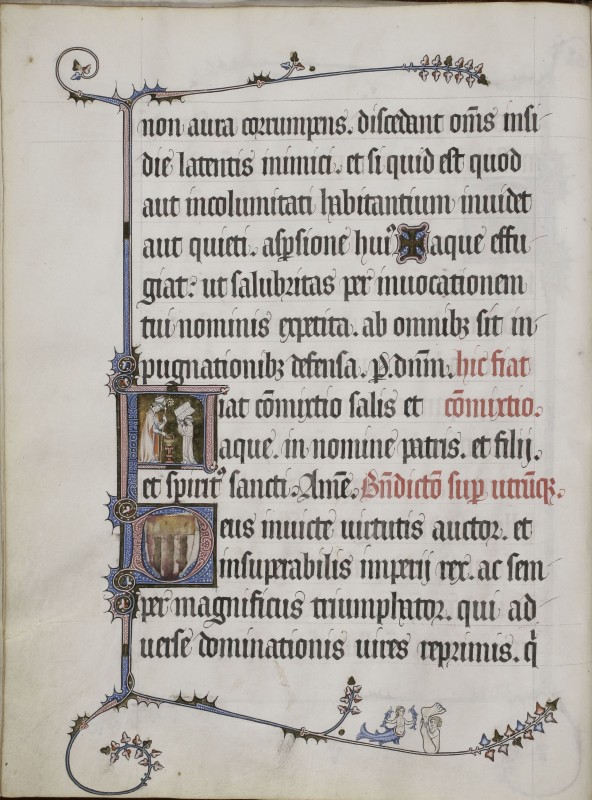 non aura corrumpens. discedant om̄s insi
die latentis inimici. et si quid est quod
aut incolumitati habitantium inuidet
aut quieti. asp̱sione huiꝰ ✠ aque effu
giat: ut salubritas per inuocationem
tui nominis expetita. ab omnibꝫ sit in
pugnationibꝫ defensa. P̱. dn̄m. hic fiat
Fiat cōmixtio salis et cōmixtio.
aque. in nomine patris. et filij.
et spiritꝰ sancti. Amē. Bn̄dictō sup̱ utrūqꝫ.
Deus inuicte uirtutis auctor. et
insuperabilis imperij rex. ac sem
per magnificus triumphator. qui ad
uerse dominationis uires reprimis. qͥ